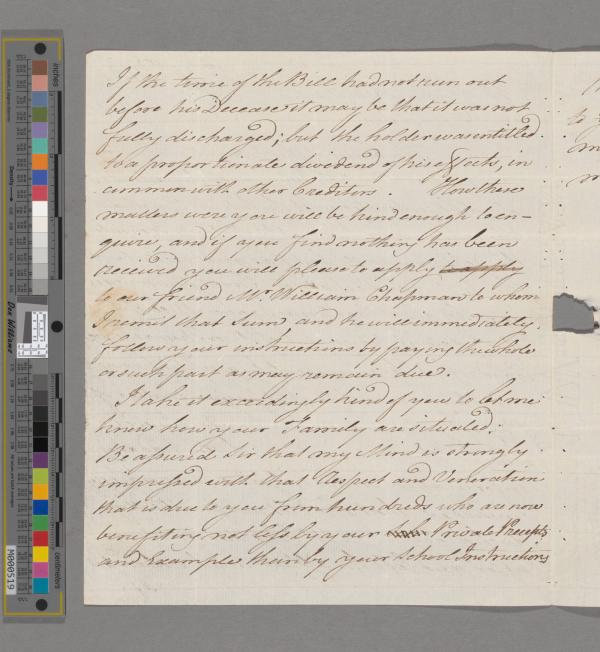 If the time of the Bill had not run out
before his Decease it may be that it was not
fully discharged; but the holder was entitled
to a proportionale dividend of his effects, in
common with other Creditors. How these
matters were you will be kind enough to en-
quire, and if you find nothing has been
received you will please to apply to apply
to our friend Mr. William Chapman to whom
I remit that Sum, and he will immediately
follow your instructions by paying the whole
or such part as may remain due.
I take it exceedingly kind of you to let me
know how your Family are situated.
Be assured Sir that my Mind is strongly
impressed with that Respect and Veneration
that is due to you from hundreds who are now
benefiting not less by your Private Precepts
and Example than by your School Instructions
to
inches
centimeters
Don Williams
M000519